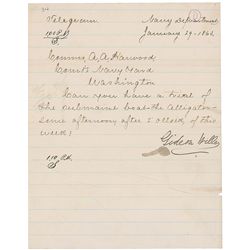 Telegram
Navy Department
January 29. 1863
Commr. A. A. Harwood
Comdt. Navy Yard
Washington
Can you have a trial of
the submarine boat the Alligator
some afternoon after 2 o'clock of this
week?
Gideon Welles